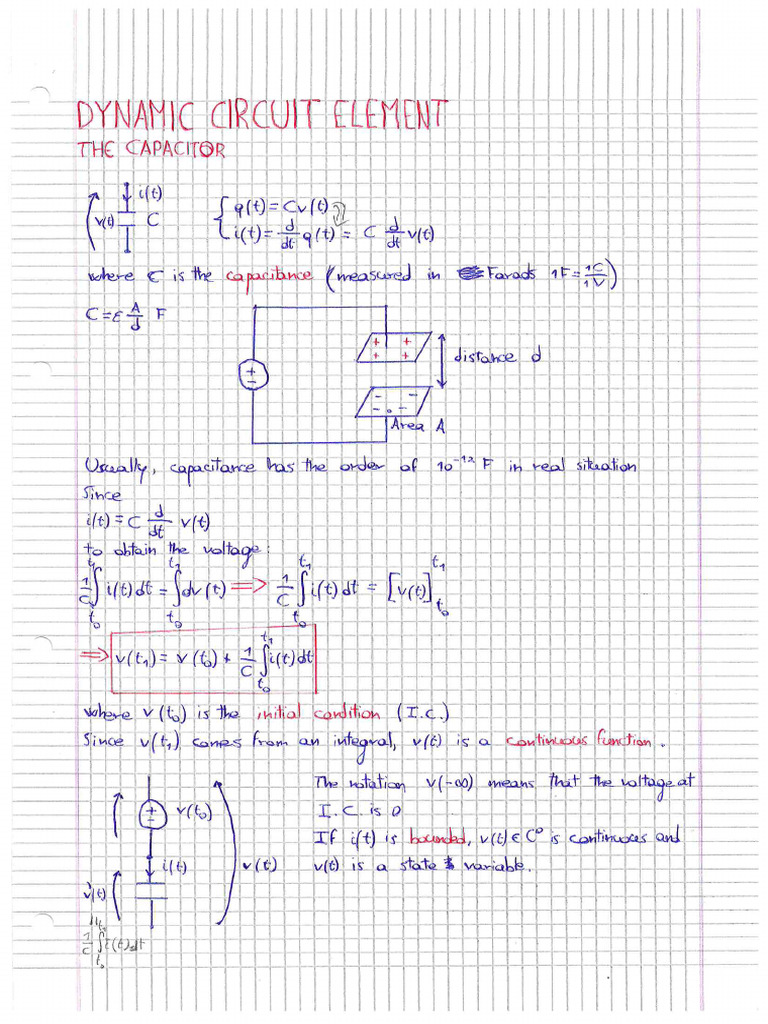 DYNAMIC CIRCUIT ELEMENT
THE CAPACITOR
i(t)
v(t) C
{ q(t) = Cv(t)
i(t) = d/dt q(t) = C d/dt v(t)
where C is the capacitance (measured in Farads 1F = 1C/1V)
C = ε A/d F
+ +
+ +
distance d
+
−
− −
− − −
Area A
Usually, capacitance has the order of 10⁻¹² F in real situation
Since
i(t) = C d/dt v(t)
to obtain the voltage:
1/C ∫_{t₀}^{t₁} i(t)dt = ∫_{t₀}^{t₁} dv(t) ⟹ 1/C ∫_{t₀}^{t₁} i(t)dt = [v(t)]_{t₀}^{t₁}
⟹ v(t₁) = v(t₀) + 1/C ∫_{t₀}^{t₁} i(t)dt
where v(t₀) is the initial condition (I.C.)
Since v(t₁) comes from an integral, v(t) is a continuous function.
The notation v(-∞) means that the voltage at
I.C. is 0
If i(t) is bounded, v(t) ∈ C⁰ is continuous and
v(t) is a state variable.
+
−
v(t₀)
i(t)
v(t)
v(t)
1/C ∫_{t₀} i(t)dt